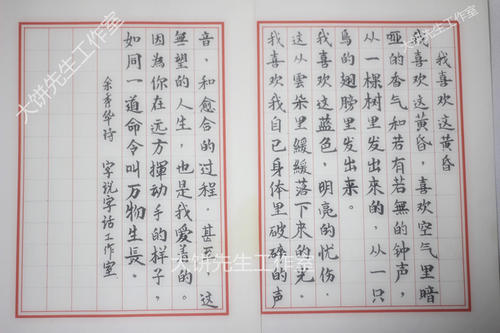 我喜欢这黄昏
我喜欢这黄昏，喜欢空气里暗
哑的香气和若有若無的钟声，
从一棵树里发出來的，从一只
鸟的翅膀里发出来。
我喜欢这蓝色，明亮的忧伤．
这从雲朵里緩緩落下来的光
我喜欢我自己身体里破碎的声
音，和愈合的过程．甚至这
無望的人生，也是我爱着的。
因為你在远方揮动手的样子，
如同一道命令叫万物生長．
余秀华诗 字说字话工作室
大饼先生工作室
大饼先生工作室
大饼先生工作室